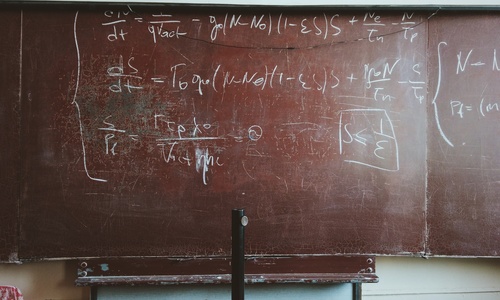 dN/dt = I/qVact - g₀(N-N₀)(1-εS)S + Ne/τn - N/τp
dS/dt = Γ₀g₀(N-N₀)(1-εS)S + ΓβN/τn - S/τp
S/Pf = Γτpλ₀/Vact ηhc = ϑ
S ≤ 1/ε
N - N
Pf = (m